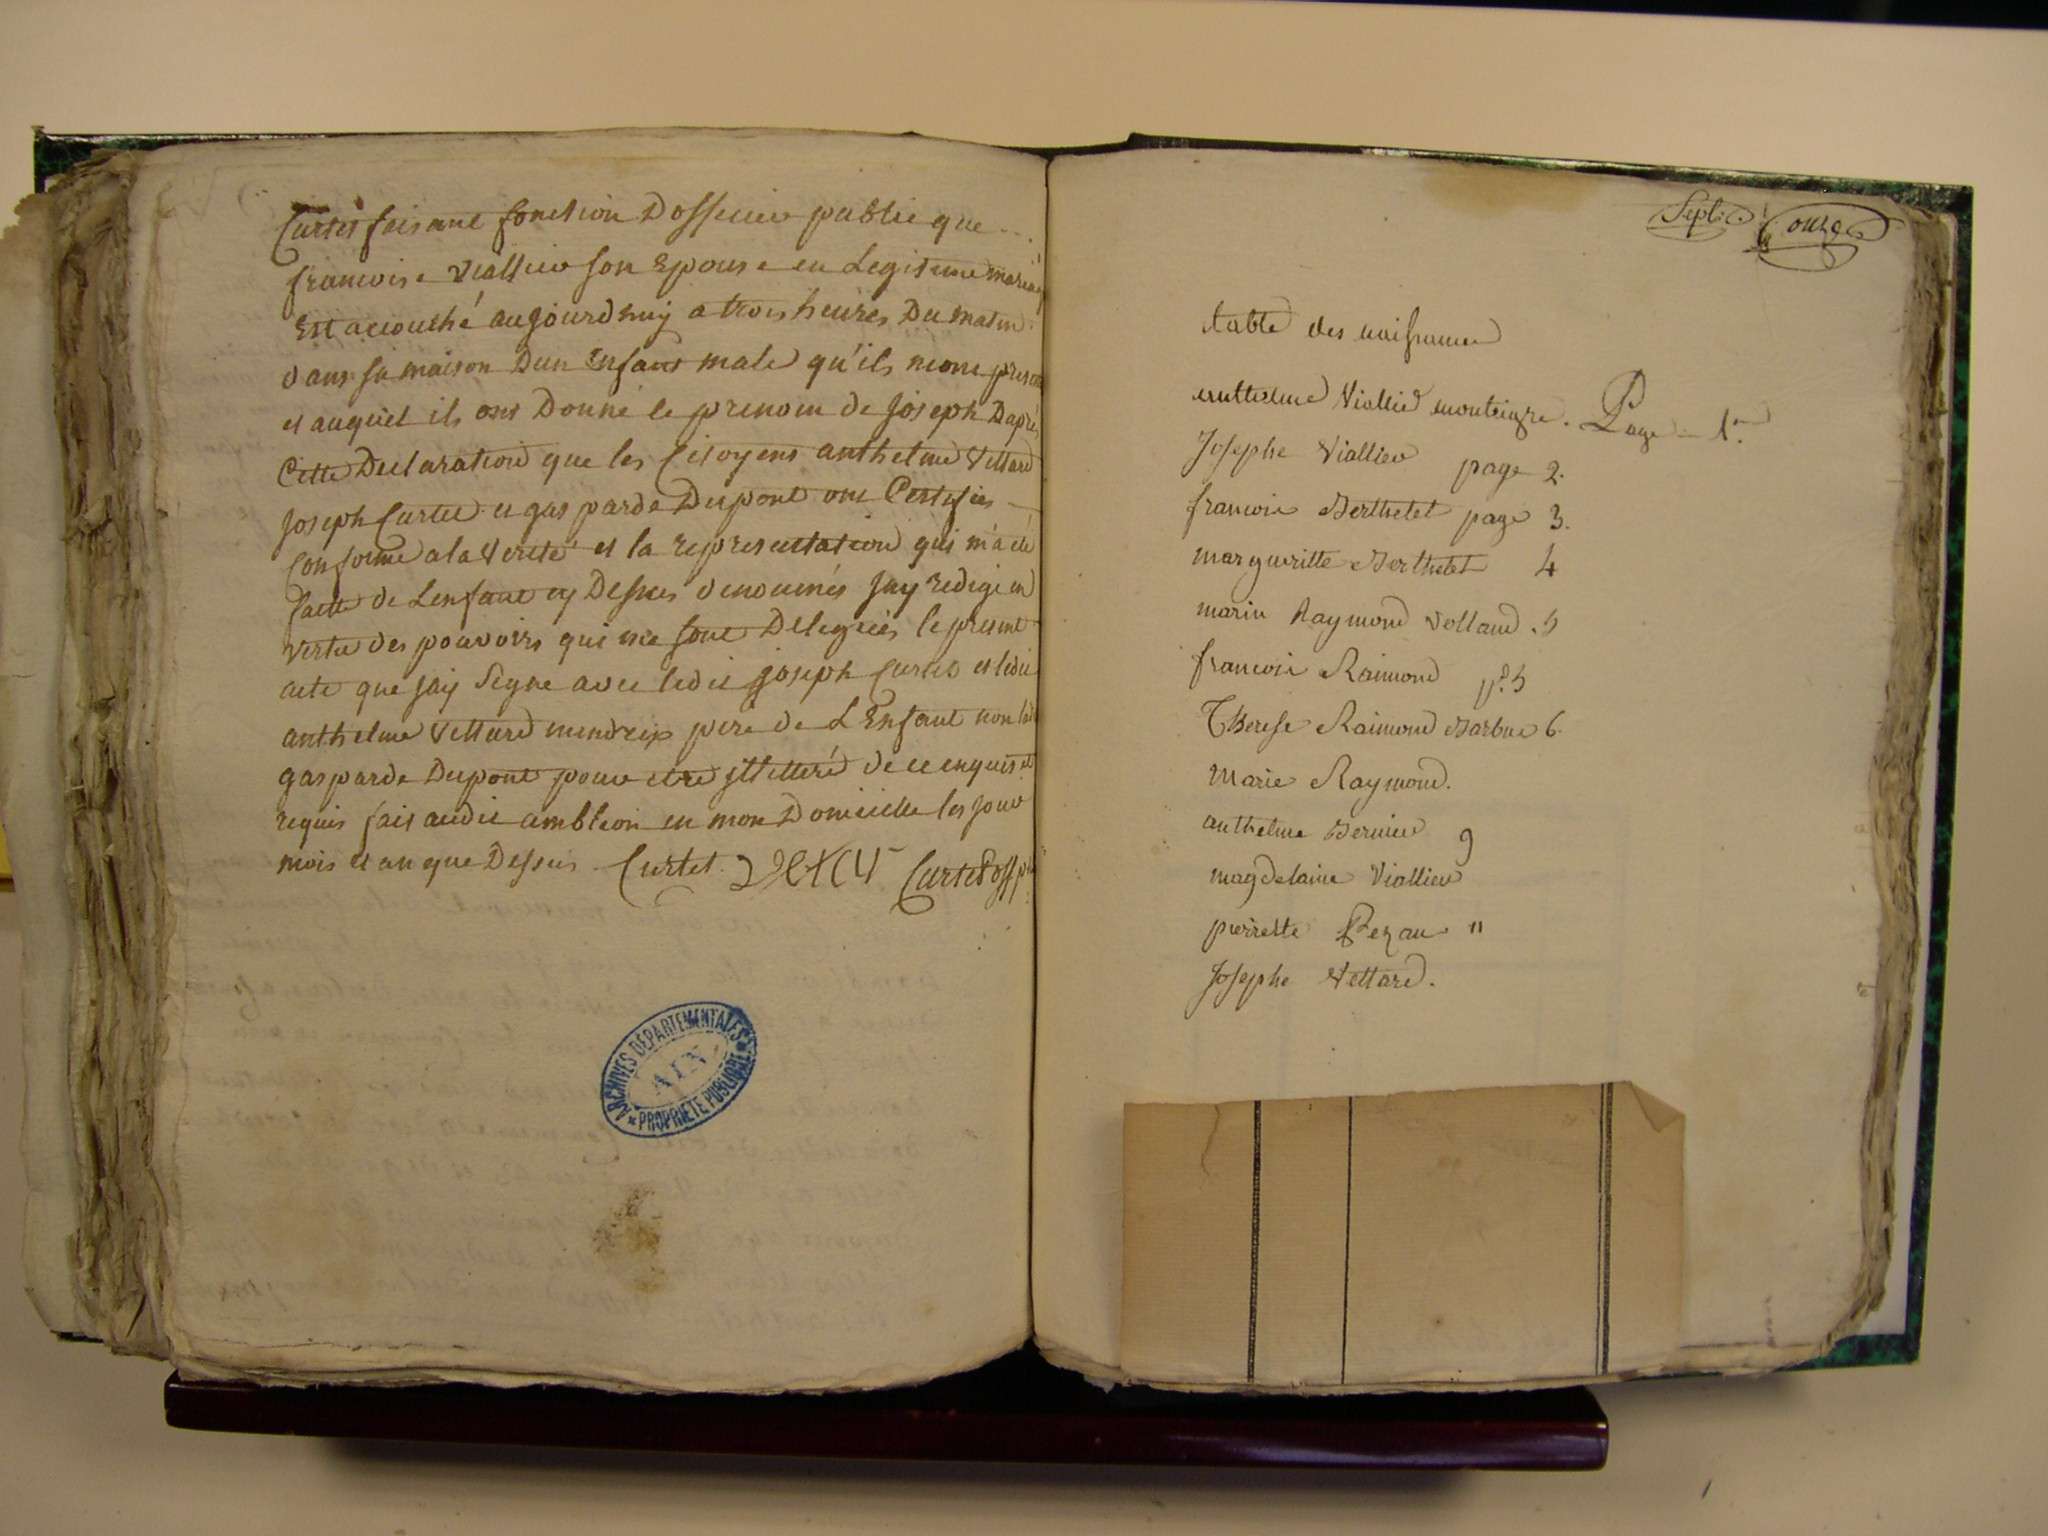 Curtet faisant fonction Dofficier public que
francoise Viallier son Epouse en Legitime mariag
Est accouché aujourdhuy a trois heures Du matin
dans sa maison Dun Enfant male qu'ils mont presenté
et auquel ils ont Donné le prenom de joseph Daprés
Cette Declaration que les Citoyens anthelme Vettard
joseph Curtet et gasparde Dupont ont Certifies
Conforme a la verite et la representation qui m'a été
faitte de Lenfant cy Dessus denommés jay redigé en
vertu des pouvoirs qui me sont Delegués le present
acte que jay Signe avec ledit joseph Curtet et ledit
anthelme Vettard pere de L'Enfant non ladi
gasparde Dupont pour etre illetteré de ce enquis et
requis fait audit ambleon en mon Domicille les jour
mois et an que Dessus Curtet Curtet off p
ARCHIVES DÉPARTEMENTALES
AIN
PROPRIÉTÉ PUBLIQUE
Sept onze
table des naissances
anthelme Viallier . Page 1er
Josephe Viallier page 2.
francois Berthelet page 3.
margueritte Berthelet 4
marin Raymond Volland . 5
francois Raimond pe 5
Therese Raimond Barbue 6.
Marie Raymond.
anthelme Bernier 9
magdelaine Viallier
pierrette Pezan 11
Josephe Vettard.